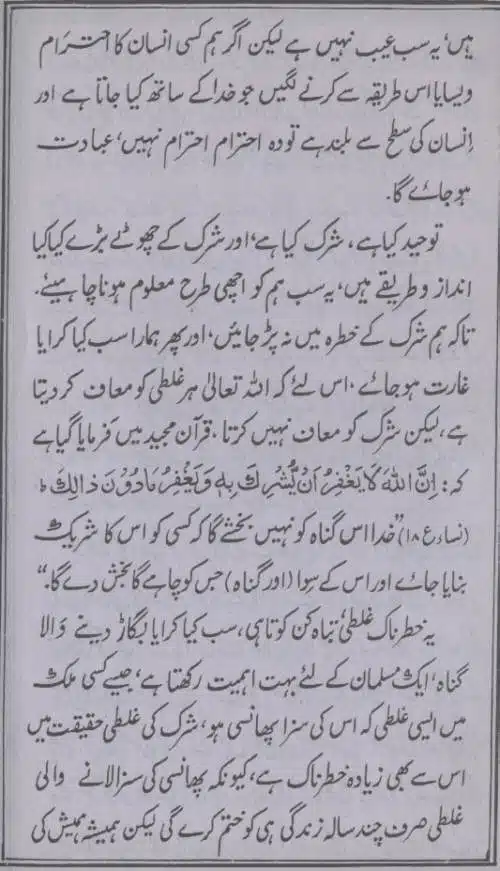 ہیں، یہ سب عیب نہیں ہے لیکن اگر ہم کسی انسان کا احترام
ویسا یا اس طریقہ سے کرنے لگیں جو خدا کے ساتھ کیا جاتا ہے اور
اِنسان کی سطح سے بلند ہے تو وہ احترام احترام نہیں، عبادت
ہو جائے گا۔
توحید کیا ہے، شرک کیا ہے، اور شرک کے چھوٹے بڑے کیا کیا
انداز و طریقے ہیں، یہ سب ہم کو اچھی طرح معلوم ہونا چاہیئے۔
تاکہ ہم شرک کے خطرہ میں نہ پڑ جائیں، اور پھر ہمارا سب کیا کرایا
غارت ہو جائے، اس لئے کہ اللہ تعالیٰ ہر غلطی کو معاف کر دیتا
ہے، لیکن شرک کو معاف نہیں کرتا، قرآن مجید میں فرمایا گیا ہے
کہ: اِنَّ اللهَ لَا يَغْفِرُ اَنْ يُّشْرِكَ بِهٖ وَيَغْفِرُ مَا دُوْنَ ذَالِكَ ط
(نساء ع ۱۸) ”خدا اس گناہ کو نہیں بخشے گا کہ کسی کو اس کا شریک
بنایا جائے اور اس کے سِوا (اور گناہ) جس کو چاہے گا بخش دے گا۔“
یہ خطرناک غلطی، تباہ کن کوتاہی، سب کیا کرایا بگاڑ دینے والا
گناہ، ایک مسلمان کے لئے بہت اہمیت رکھتا ہے، جیسے کسی ملک
میں ایسی غلطی کہ اس کی سزا پھانسی ہو، شرک کی غلطی حقیقت میں
اس سے بھی زیادہ خطرناک ہے، کیونکہ پھانسی کی سزا لانے والی
غلطی صرف چند سالہ زندگی ہی کو ختم کرے گی لیکن ہمیشہ ہمیش کی